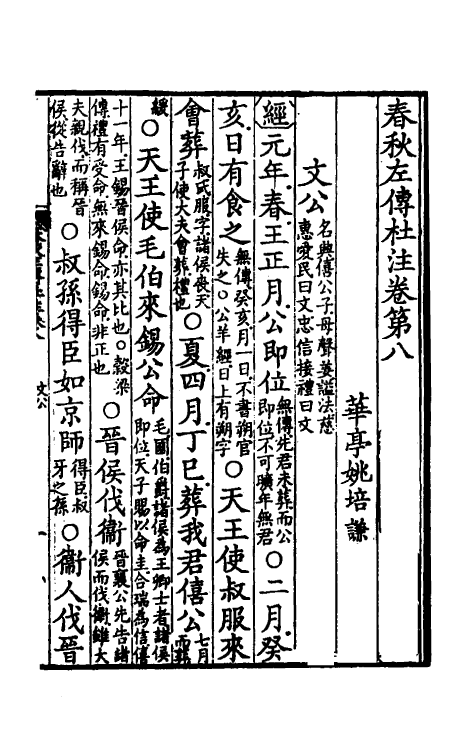 春秋左傳杜注卷第八
華亭姚培謙
文公 名興僖公子母聲姜謚法慈惠愛民曰文忠信接禮曰文
經 元年春王正月公即位 無傳先君未葬而公即位不可曠年無君 ○二月癸
亥日有食之 無傳癸亥月一日不書朔官失之○公羊經日上有朔字 ○天王使叔服來
會葬 叔氏服字諸侯喪天子使大夫會葬禮也 ○夏四月丁巳葬我君僖公 七月而葬
緩 ○天王使毛伯來錫公命 毛國伯爵諸侯為王卿士者諸侯即位天子賜以命圭合瑞為信僖
十一年王錫晉侯命亦其比也○穀梁傳禮有受命無來錫命錫命非正也 ○晉侯伐衞 晉襄公先告諸侯而伐衞雖大
夫親伐而稱晉侯從告辭也 ○叔孫得臣如京師 得臣叔牙之孫 ○衞人伐晉
文公